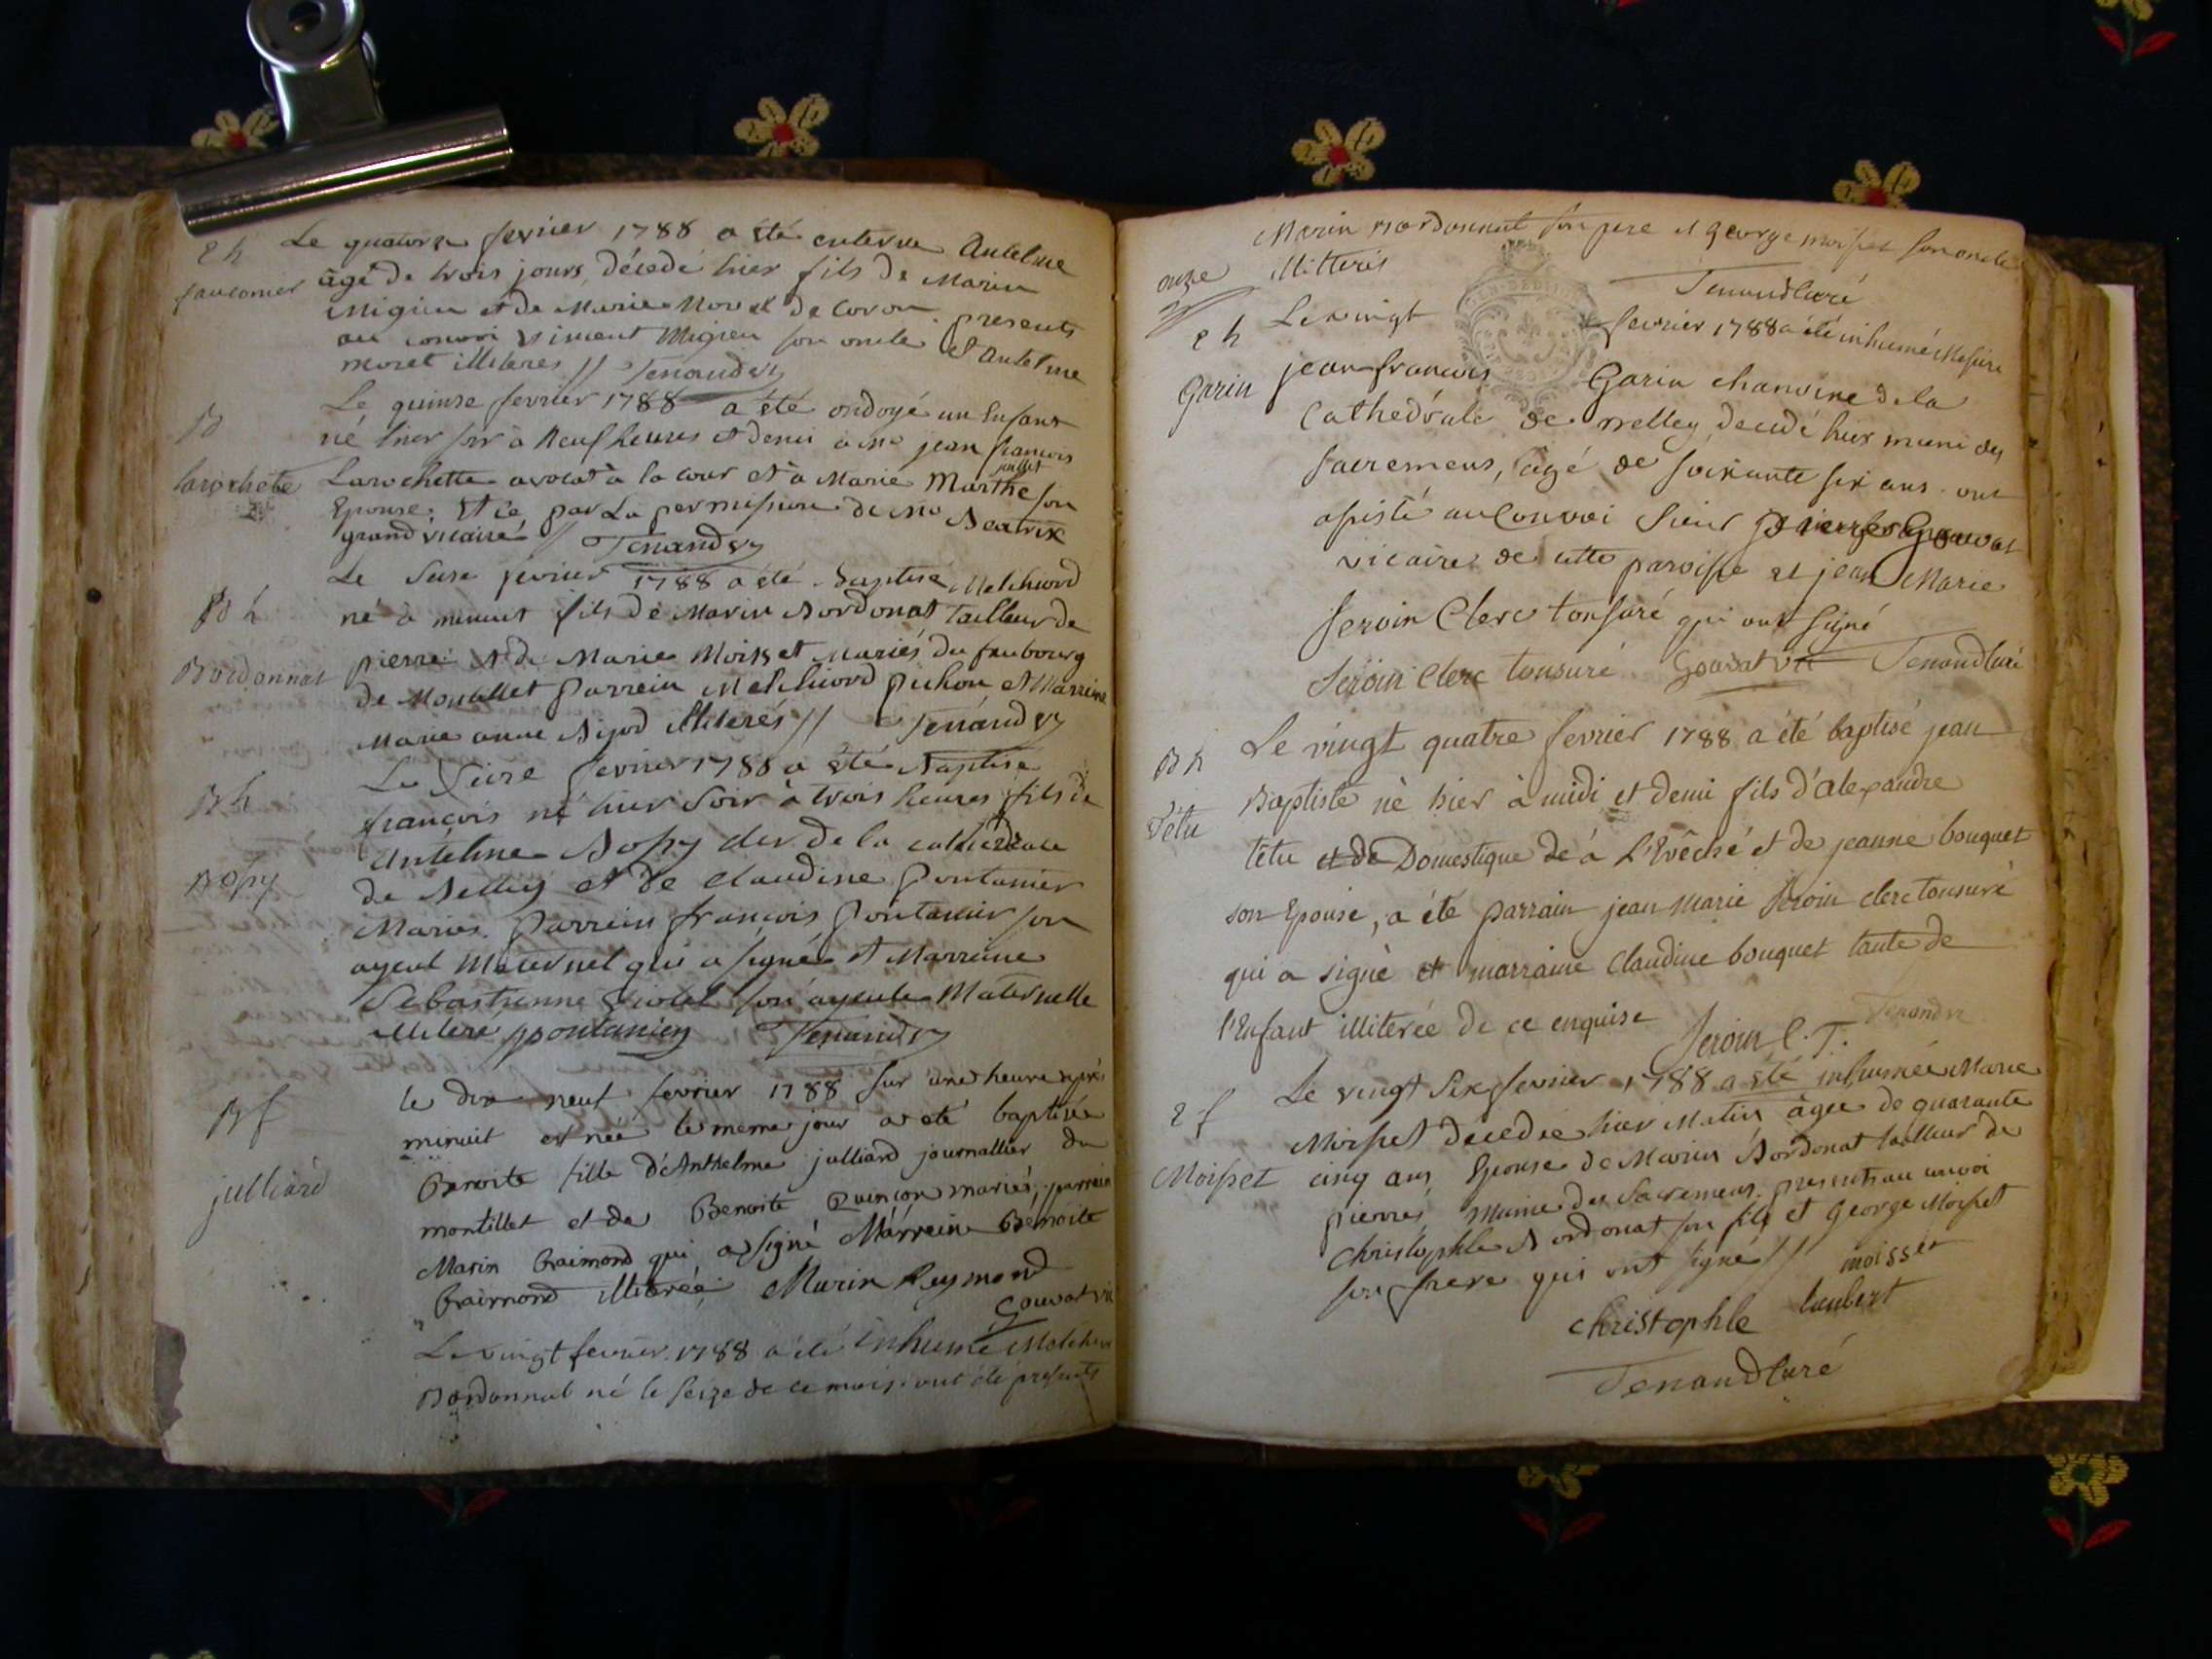 E h Le quatorze fevrier 1788 a été enterré Antelme
âgé de trois jours, décedé hier fils de Marin
Migieu et de Marie Moret de Coron. presents
au convoi vincent Migieu son oncle et Antelme
moret illiteres // Tenand
B Le quinse fevrier 1788 a été ondoyé un Enfant
né hier soir à Neuf heures et demi à Mre jean francois
larochete Larochette avocat à la cour et à Marie Marthe son
Epouse. Et ce par La permission de Mre Beatrix
grand vicaire // Tenand
Le Seise fevrier 1788 a été Baptisé Melchiord
B h né à minuit fils de Marin Bordonat Tailleur de
Bordonnat pierre et de Marie Moisset Mariés du faubourg
de Montillet Parrein Melchiord pichon et Marreine
Marie anne illiterés // Tenand
Le Seize fevrier 1788 a été Baptisé
B h françois né hier Soir à trois heures fils de
Antelme Bospy clerc de la cathedrale
Bospy de Belley et de Claudine Pontanier
Mariés. Parrein françois Pontanier son
ayeul Maternel qui a signé et Marreine
Sebastienne son ayeule Maternelle
illitere ppontanier Tenand
B f le dix neuf fevrier 1788 sur une heure après
minuit est née le meme jour a eté baptisée
julliard Benoite fille d'Anthelme julliard journallier du
montillet et de Benoite Quinçon mariés, parrein
Marin Raimond qui a signé Marreine Benoite
Raimond illiterée Marin Reymond
Gouvat vic
Le vingt fevrier 1788 a été inhumé Melchior
Bordonnat né le seize de ce mois. ont été presents
Marin Bordonnat son pere et george moisset son oncle
onze illitterés
Tenand Curé
E h Le vingt fevrier 1788 a été inhumé Messire
Garin jean francois Garin chanoine de la
Cathedrale de Belley, decedé hier muni des
sacremens, agé de soixante six ans. ont
assisté au Convoi Sieur pierre Gouvat
vicaire de cette paroisse et jean Marie
Seroin Clerc tonsuré qui ont signé
Seroin Clerc tonsuré Gouvat vic Tenand Curé
B h Le vingt quatre fevrier 1788 a été baptisé jean
Baptiste né hier à midi et demi fils d'alexandre
Tétu têtu et de Domestique de à L'Evêché et de jeanne bouquet
son Epouse, a été parrain jean Marie Seroin clerc tonsuré
qui a signé et marraine Claudine bouquet tante de
l'Enfant illiterée de ce enquise
Seroin C. T. Tenand
E f Le vingt Six fevrier 1788 a été inhumée Marie
Moisset décedée hier Matin âgée de quarante
Moisset cinq ans Epouse de Marin Bordonat tailleur de
pierres munie des Sacremens. presents au convoi
Christophle Bordonat son fils et George Moisset
son frere qui ont signé // moisset
christophle
Tenand Curé